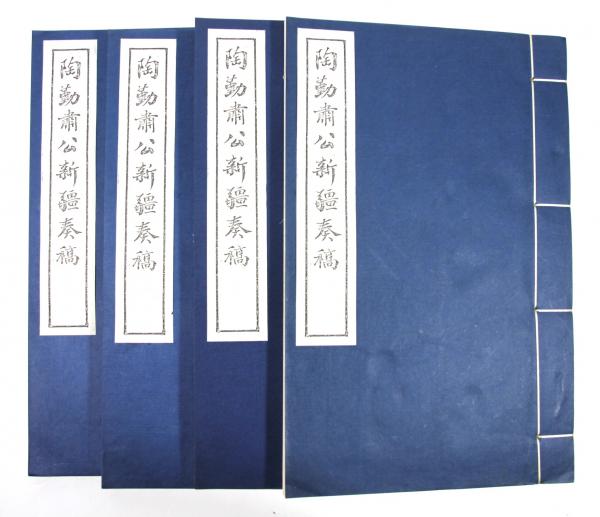 陶勤肅公新疆奏稿
陶勤肅公新疆奏稿
陶勤肅公新疆奏稿
陶勤肅公新疆奏稿